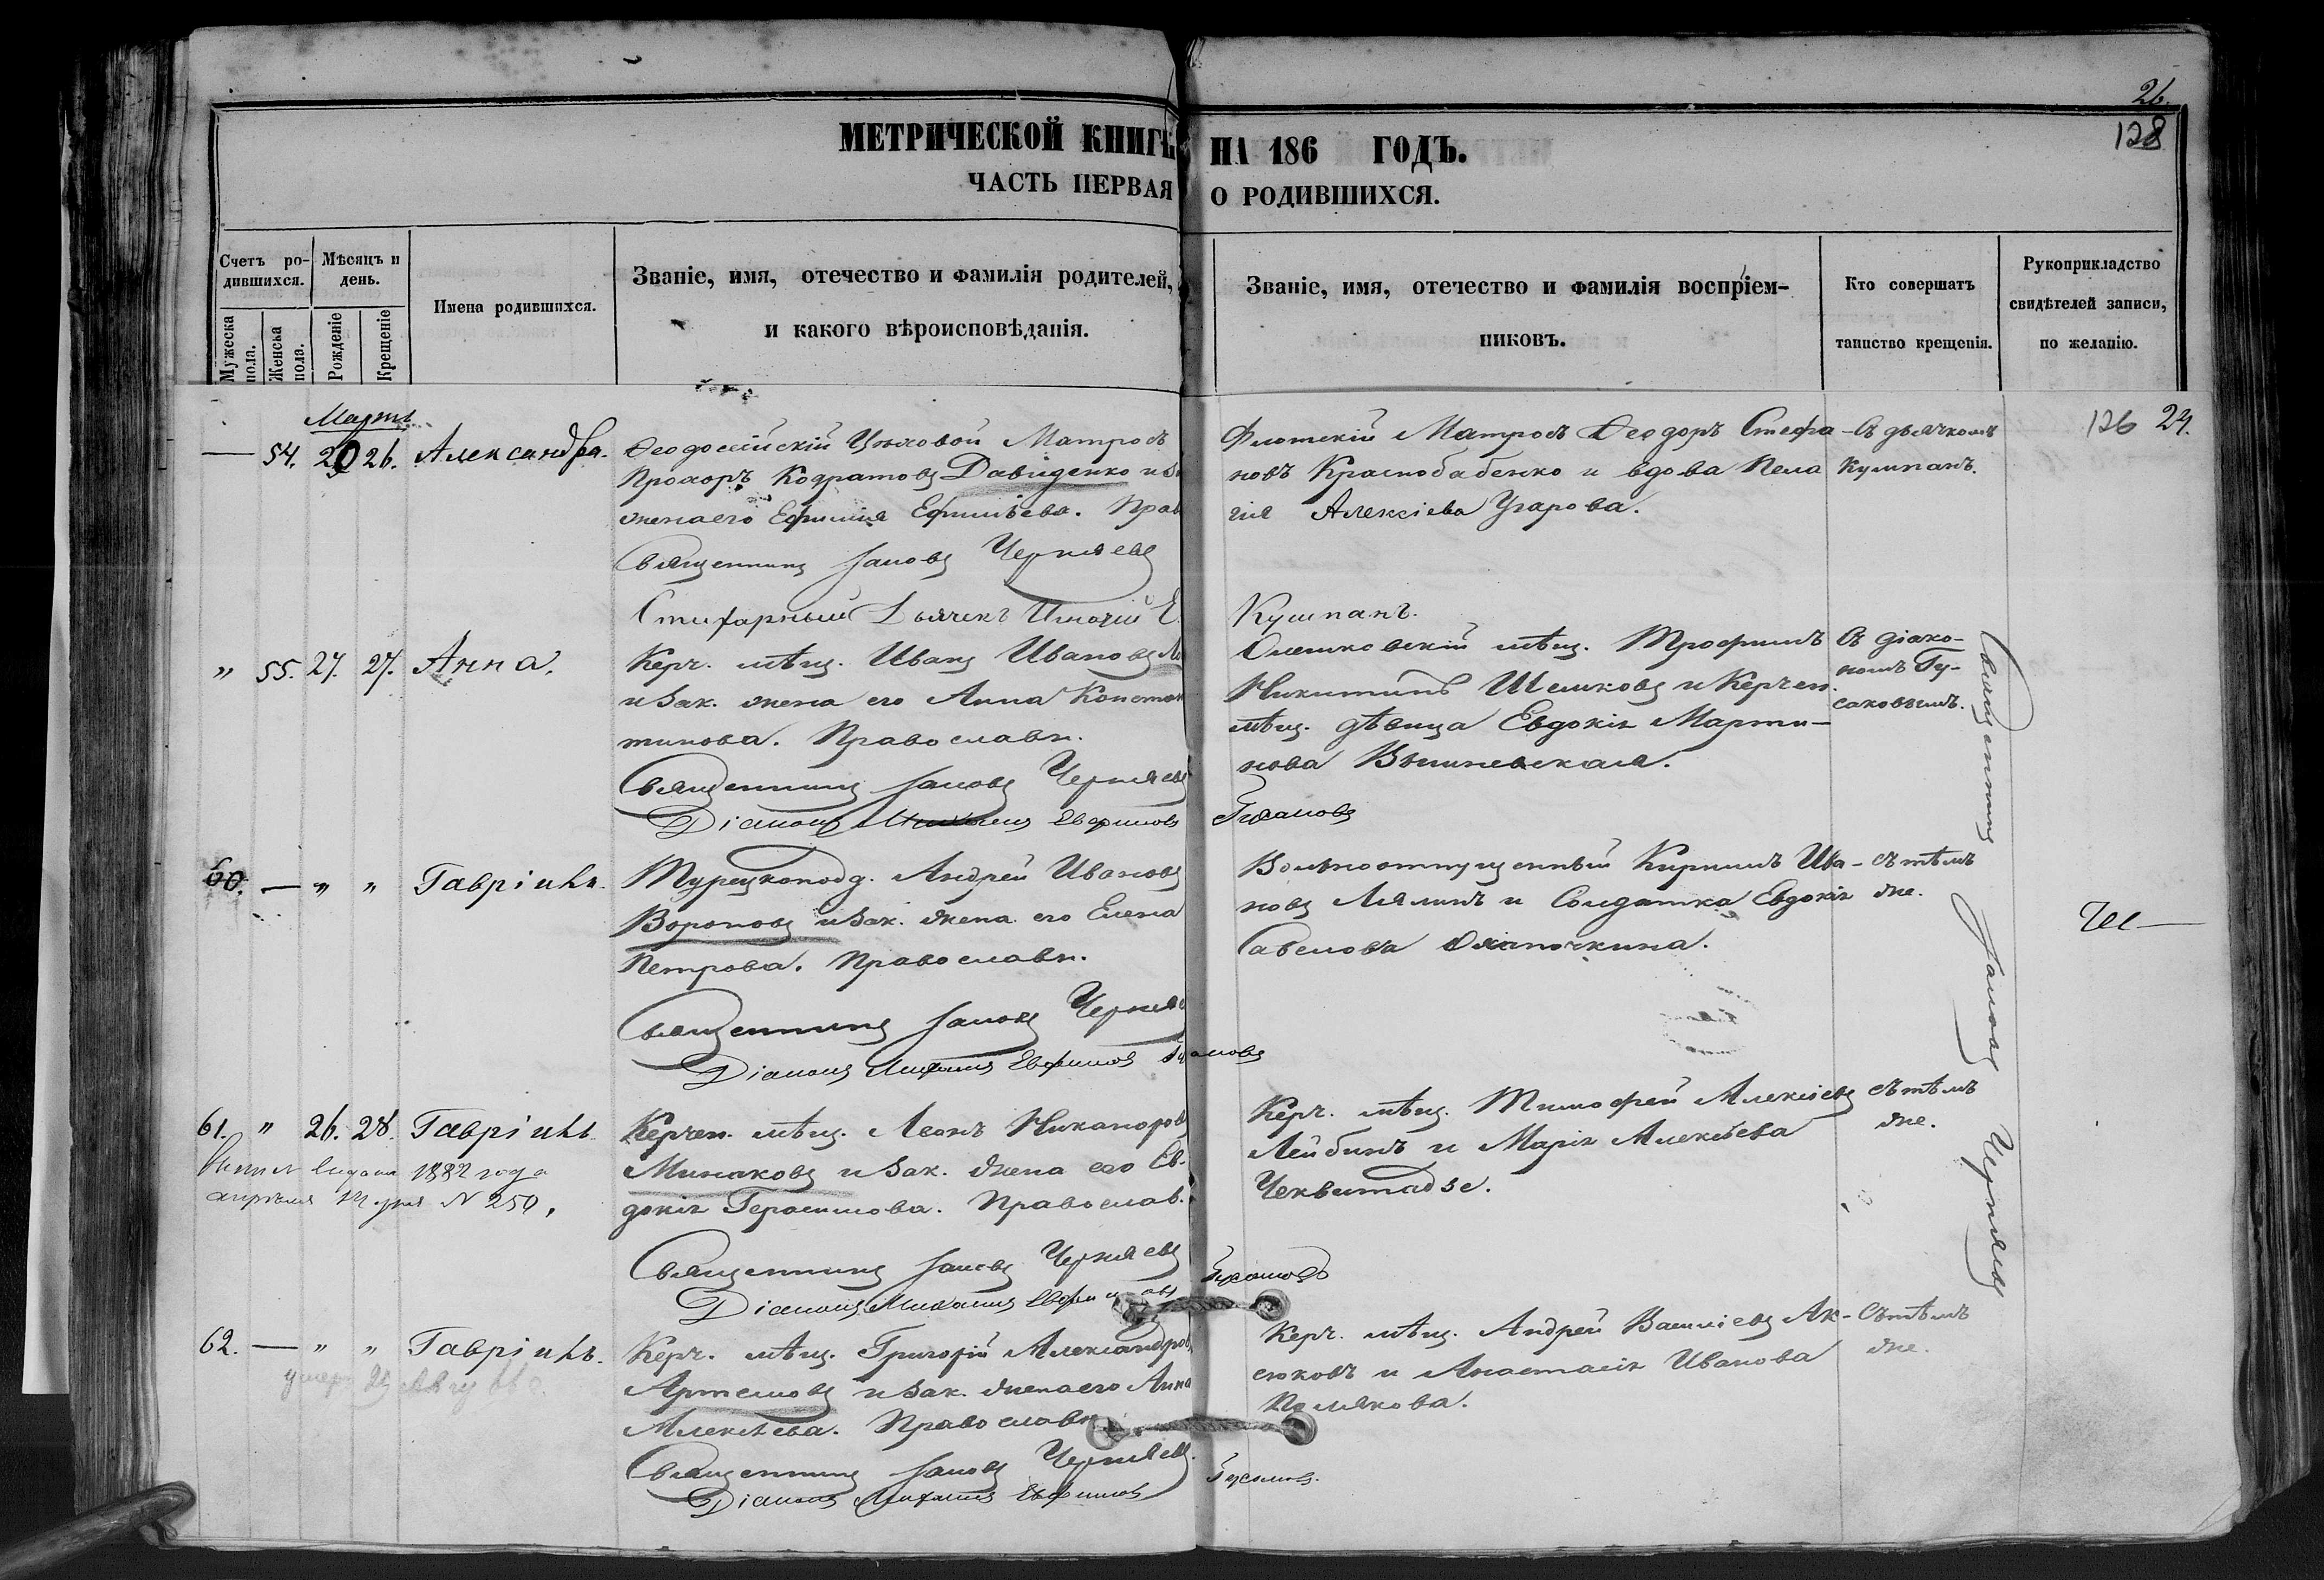 26.
128
МЕТРИЧЕСКОЙ КНИГѢ НА 186 ГОДЪ.
ЧАСТЬ ПЕРВАЯ О РОДИВШИХСЯ.
Счетъ ро-
дившихся.
Мужеска пола.
Женска пола.
Мѣсяцъ и
день.
Рожденіе
Крещеніе
Имена родившихся.
Званіе, имя, отечество и фамилія родителей,
и какого вѣроисповѣданія.
Званіе, имя, отечество и фамилія воспріем-
никовъ.
Кто совершатъ
таинство крещенія.
Рукоприкладство
свидѣтелей записи,
по желанію.
Мартъ
— 54. 20 26. Александра.
Ѳеодосійскій Цеховой Матросъ
Прохоръ Кодратовъ Давиденко и
жена его Ефимія Ефиміева. Прав
Священникъ Іаковъ Черняевъ
Стихарный Дьячекъ
Флотскій Матросъ Ѳеодоръ Стефа-
новъ Краснобабенко и вдова Пела
гія Алексіева Угарова.
Кушпанъ.
Съ дьячкомъ
Кушпанъ.
126 24.
„ 55. 27. 27. Анна.
Керч. мѣщ. Иванъ Ивановъ
и зак. жена его Анна Констан
тинова. Православн.
Священникъ Іаковъ Черняевъ
Діаконъ Михаилъ Евфимовъ Гусаковъ
Олешковскій мѣщ. Трофимъ
Никитинъ Шешковъ и Керчен.
мѣщ. дѣвица Евдокія Марти-
нова Вишневская.
Съ діако-
номъ Гу-
саковымъ.
Священникъ Іаковъ Черняевъ
60. — „ „ Гавріилъ.
Турецкопод. Андрей Ивановъ
Вороновъ и зак. жена его Елена
Петрова. Православн.
Священникъ Іаковъ Черняе
Діаконъ Михаилъ Евфимовъ Гусаковъ
Вольноотпущенный Кириллъ Ива-
новъ Лялинъ и Солдатка Евдокія
Савелова
съ тѣмъ
же.
61. „ 26. 28. Гавріилъ.
выдана 1882 года
апрѣля 14 дня N 250.
Керчен. мѣщ. Леонъ Никаноровъ
Минаковъ и зак. жена его Ев-
докія Герасимова. Православ.
Священникъ Іаковъ Черняевъ
Діаконъ Михаилъ Евфимовъ Гусаковъ
Керч. мѣщ. Тимофей Алексіевъ
Лейбинъ и Марія Алексѣева
Чеквитадзе.
съ тѣмъ
же.
62. — „ „ Гавріилъ.
умеръ
Керч. мѣщ. Григорій Александров
Артемовъ и зак. жена его Анна
Алексѣева. Православн
Священникъ Іаковъ Черняевъ.
Діаконъ Михаилъ Евфимовъ Гусаковъ.
Керч. мѣщ. Андрей Василіевъ Ак-
сюковъ и Анастасія Иванова
Полякова.
Съ тѣмъ
же.